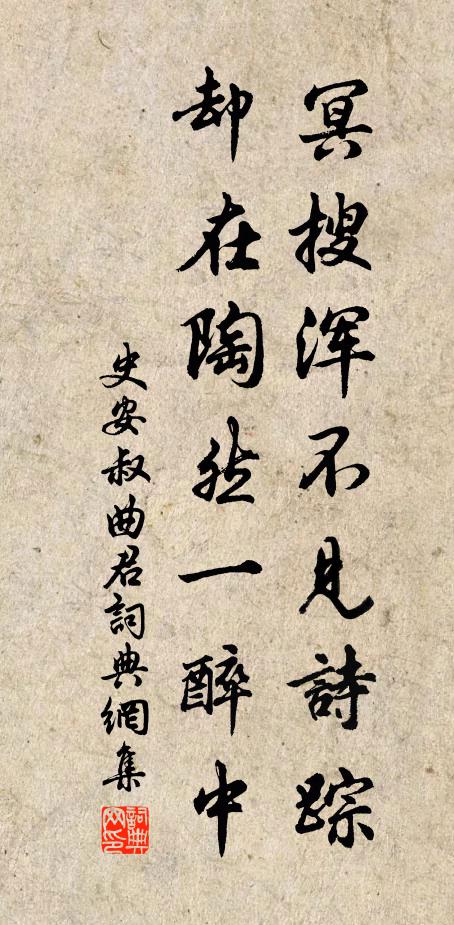 冥搜浑不见詩踪
却在陶然一醉中
史安叔曲君詞典網集
詞典网印